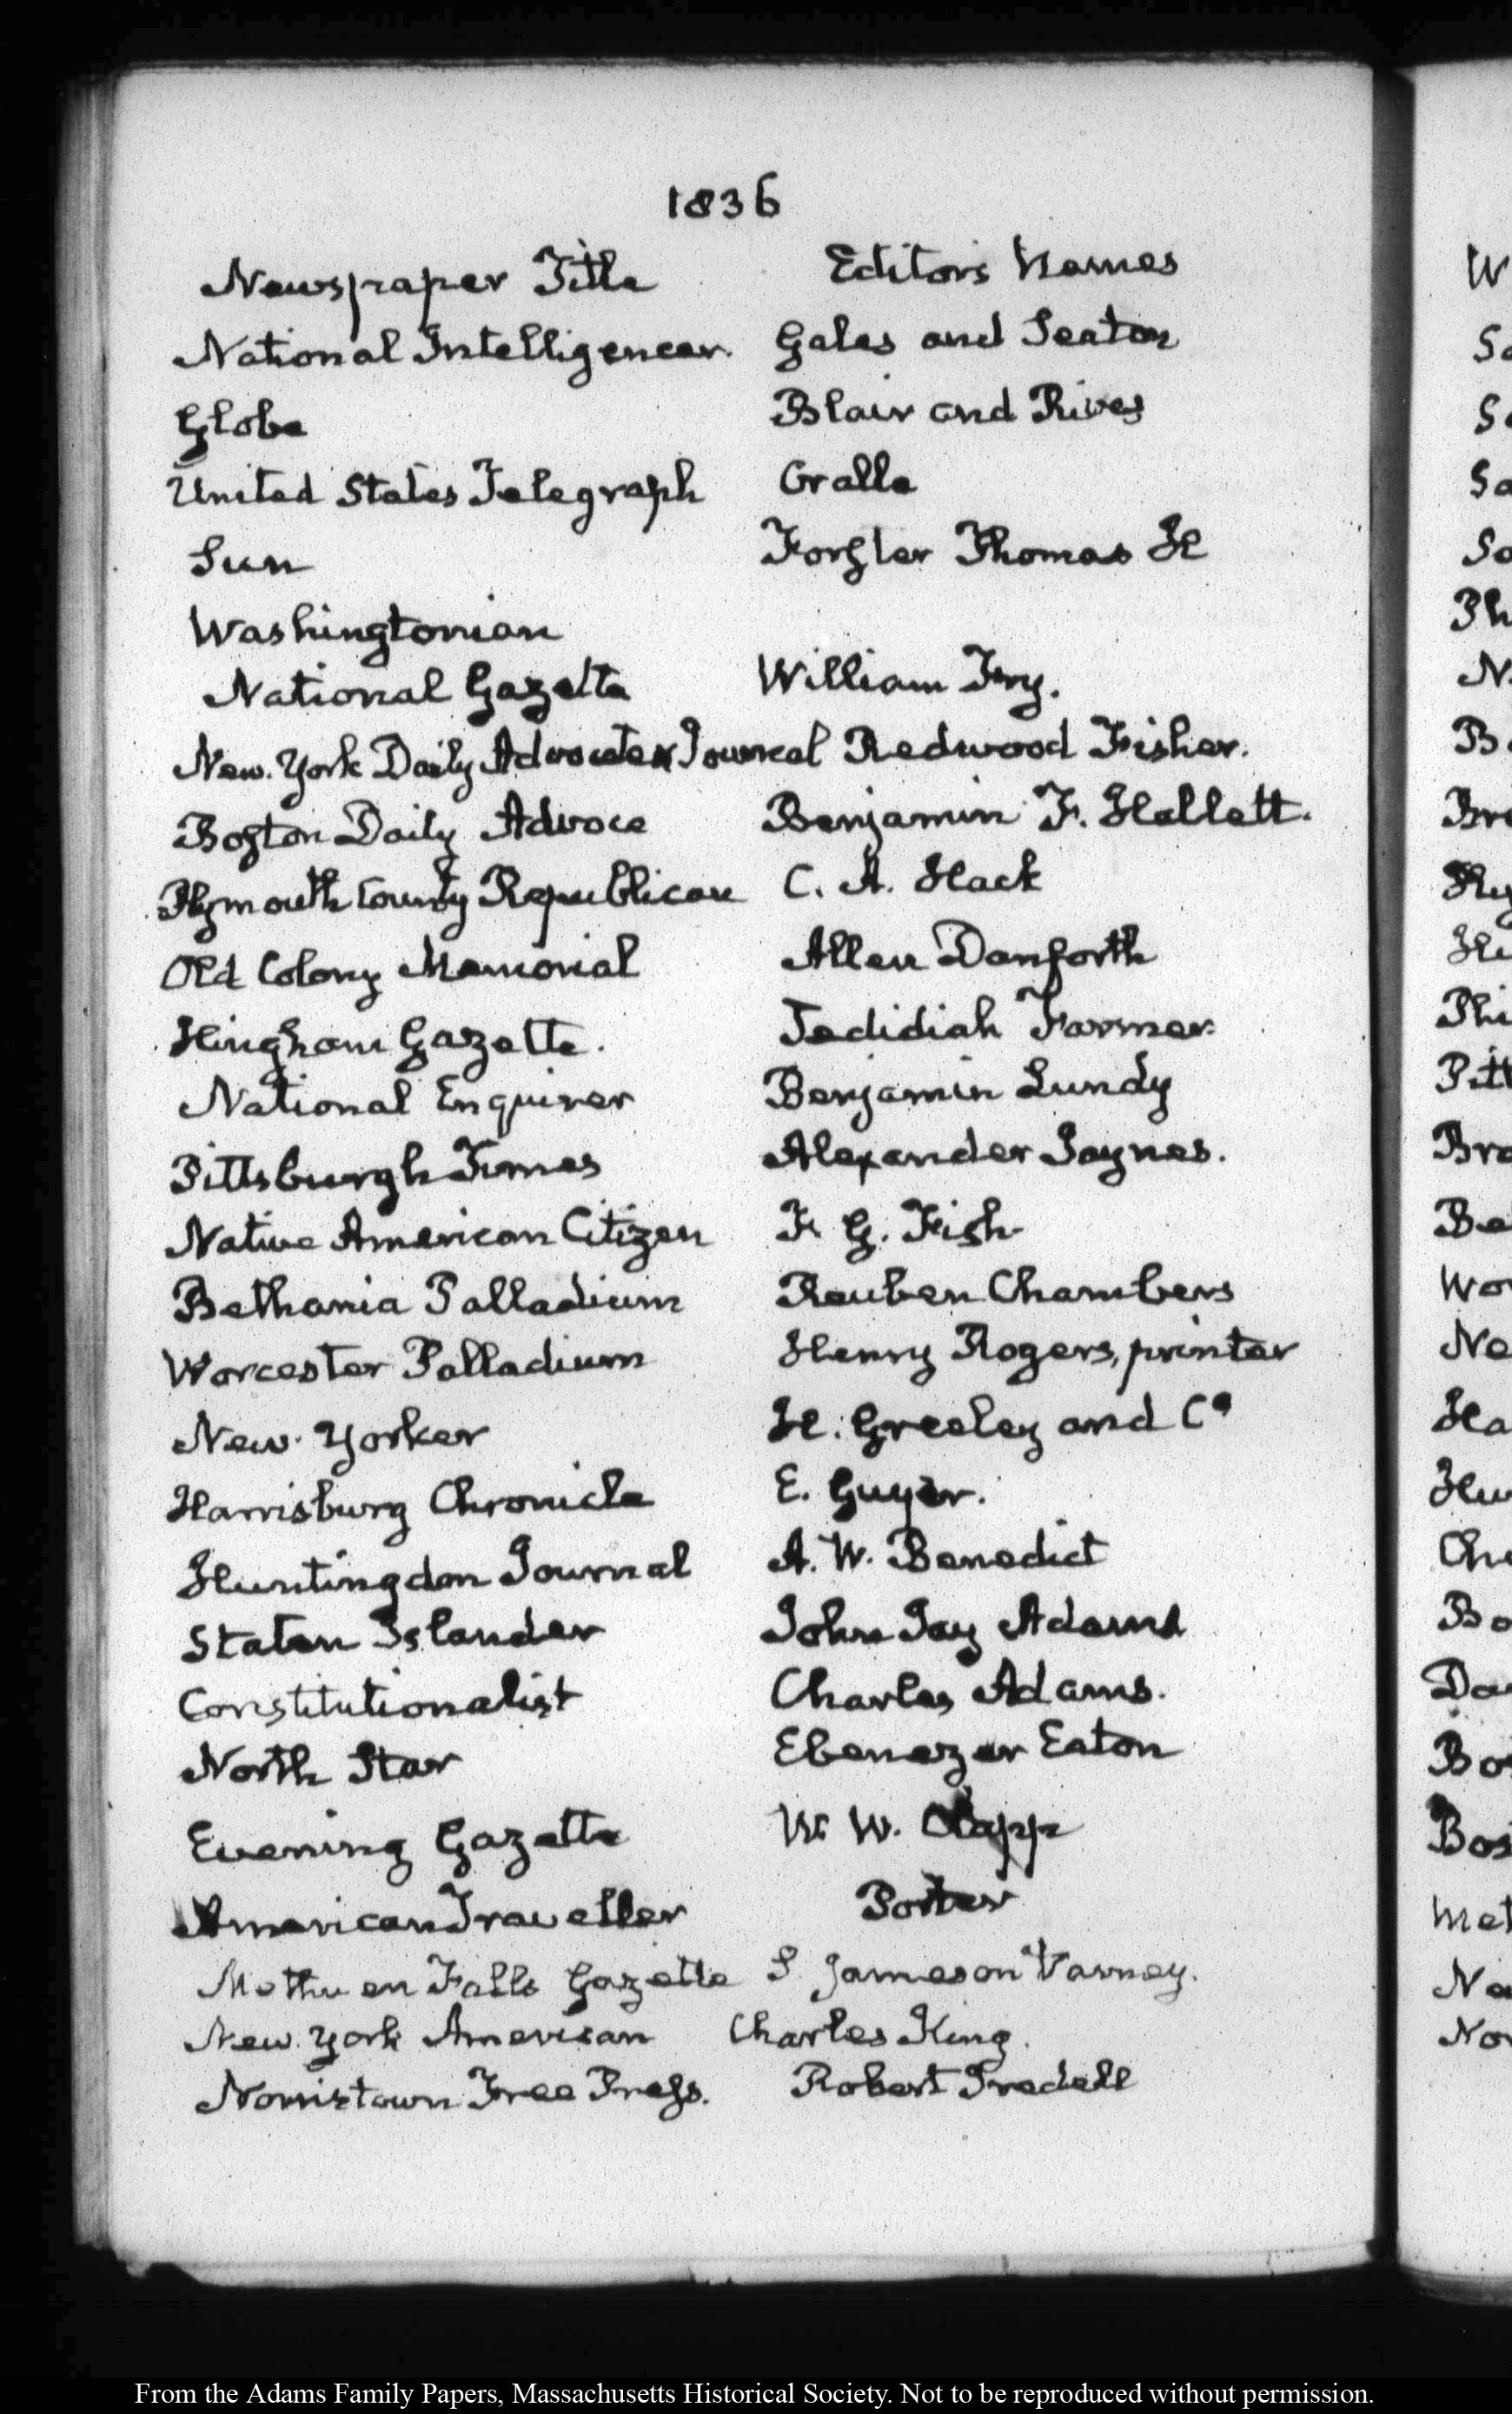 1836
Newspaper Title Editors Names
National Intelligencer. Gales and Seaton
Globe Blair and Rives
United States Telegraph Cralle
Sun Thomas H
Washingtonian
National Gazette William Fry.
New. York Daily Advocate & Journal Redwood Fisher.
Boston Daily Advoce Benjamin F. Hallett.
Plymouth County Republican C. A. Hack
Old Colony Memorial Allen Danforth
Hingham Gazette. Jedidiah Farmer.
National Enquirer Benjamin Lundy
Pittsburgh Times Alexander Jaynes.
Native American Citizen F. G. Fish
Bethania Palladium Reuben Chambers
Worcester Palladium Henry Rogers, printer
New. Yorker H. Greeley and Co
Harrisburg Chronicle E. Guyer.
Huntingdon Journal A. W. Benedict
Staten Islander John Jay Adams
Constitutionalist Charles Adams.
North Star Ebenezer Eaton
Evening Gazette W. W. Clapp
American Traveller Porter
Methuen Falls Gazette S. Jameson Varney.
New. York American Charles King.
Norristown Free Press. Robert Iredell
W
So
S
So
So
Ph
N
B
Bro
Hi
Phi
Pitt
Bra
Be
Wo
Ne
Ha
Hu
Ch
Bo
Da
Bo
Bos
Met
Ne
No
From the Adams Family Papers, Massachusetts Historical Society. Not to be reproduced without permission.